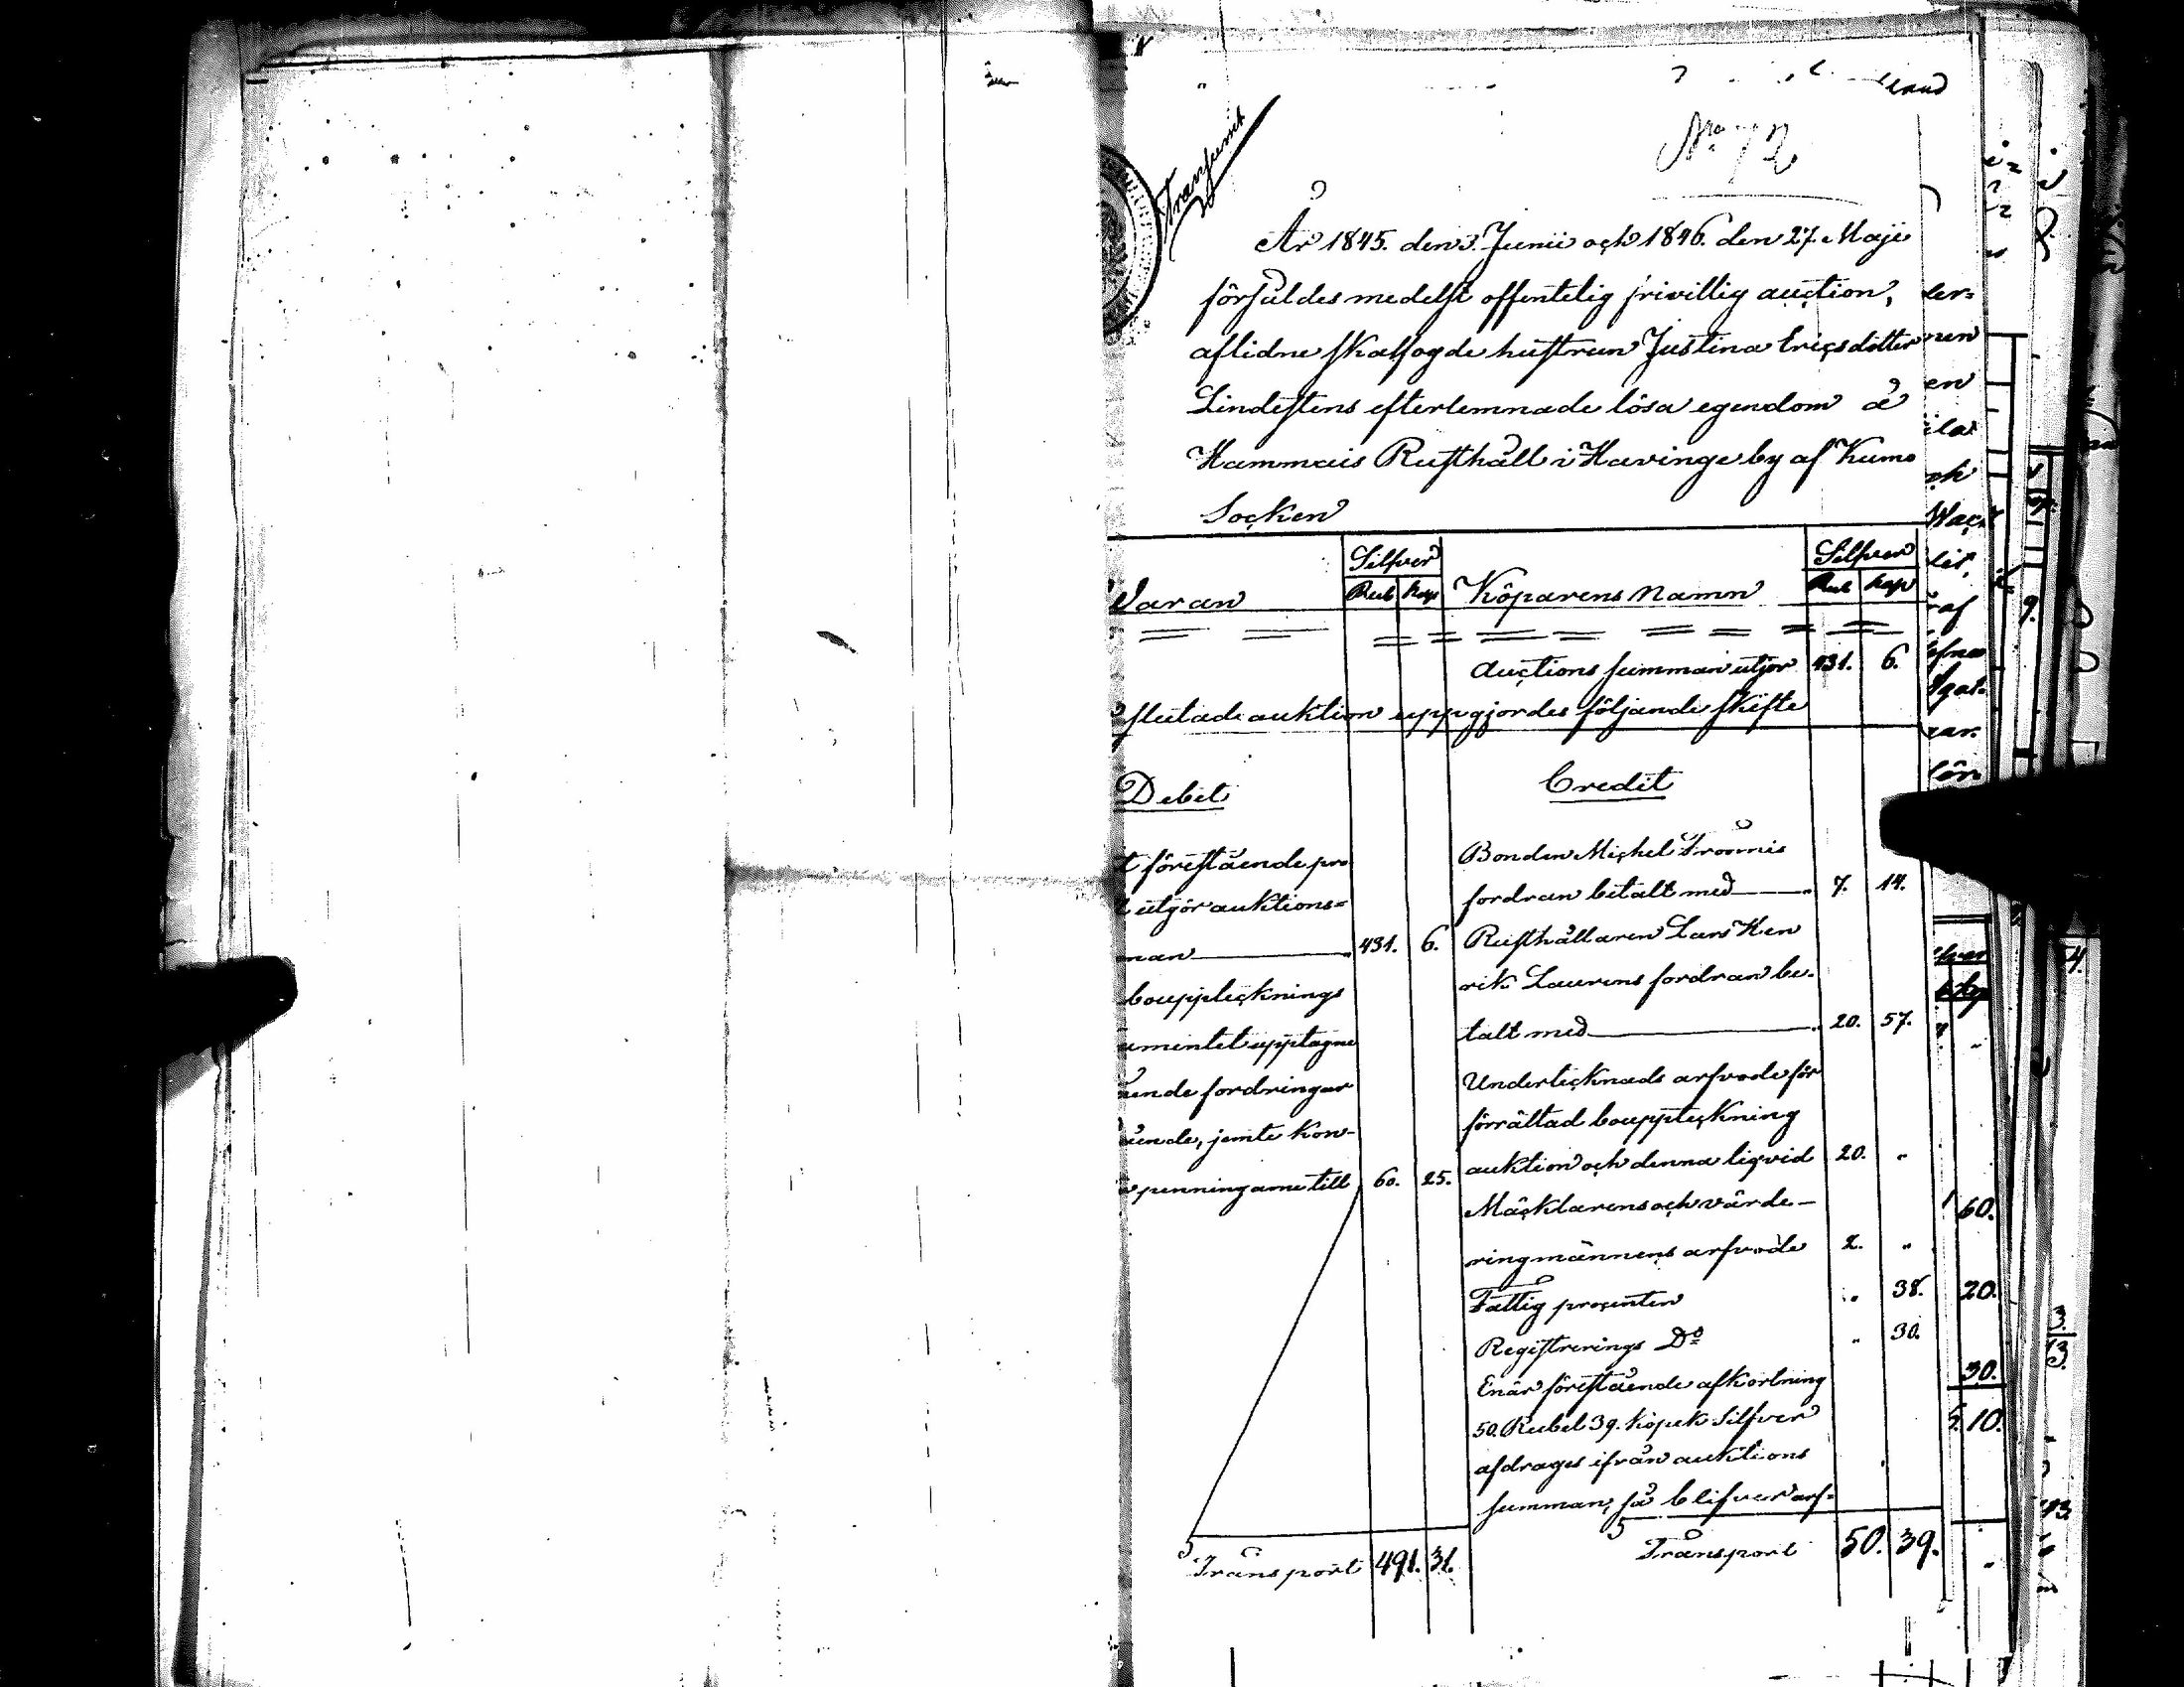 Transsumt
No 72
År 1845. den 3. Junii och 1846. den 27. Maji
försåldes medelst offentelig frivillig auction,
aflidne skalfogde hustrun Justina Ericsdotter
Lindestens efterlemnade lösa egendom å
Hammais Rusthåll i Havinge by af Kumo
Socken
Varan
Silfver
Rub kop
Köparens namn
Silfver
Rub kop
Auctions summan utjör 431. 6.
slutade auktion uppgjordes följande skifte
Debet
t förestående pro
l utgör auktions=
man 431. 6.
boupptecknings
umentet upptagne
ående fordringar
ående, jemte kon-
penningarne till 60. 25.
Transport 491. 31.
Credit
Bonden Michel
fordran betalt med 7. 14.
Rusthållaren Lars Hen
rik Laurens fordran be-
talt med 20. 57.
Undertecknads arfvode för
förrättad bouppteckning
auktion och denna liqvid 20. "
Mäcklarens och värde-
ringmännens arfvode 2. "
Fattig procenten " 38.
Registrerings Do " 30.
Enär förestående afkortning
50. Rubel 39. kopek Silfver
afdrages ifrån auktions
summan, så blifver arf=
Transport 50. 39.
60.
20.
30.
10.